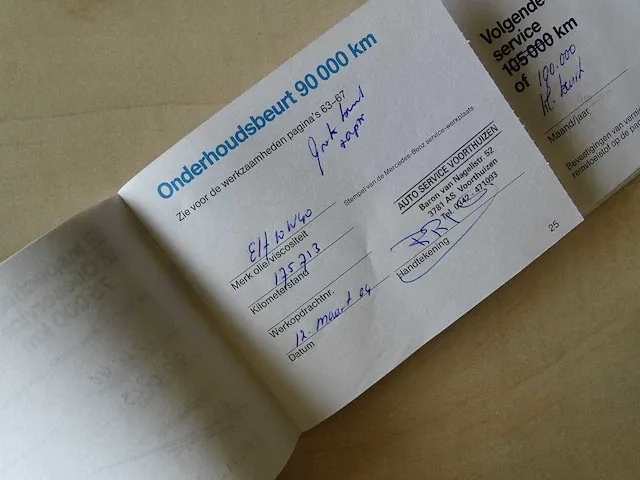 Onderhoudsbeurt 90 000 km
Zie voor de werkzaamheden pagina's 63–67
Grote beurt
Stempel van de Mercedes-Benz service-werkplaats
Elf 10W40
Merk olie/viscositeit
175713
Kilometerstand
Werkopdrachtnr.
12 maart 04
Datum
AUTO SERVICE VOORTHUIZEN
Baron van Nagellstr. 52
3781 AS Voorthuizen
Tel. 0342-471093
Handtekening
25
Volgende
service
105 000 km
of 190.000
kl. beurt
Maand/jaar
Bevestigingen van
remvloeistof op de